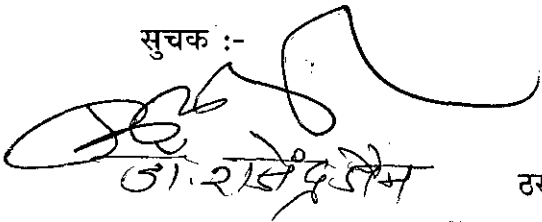 सुचक :-
डा. राजेंद्र जैन
ठर